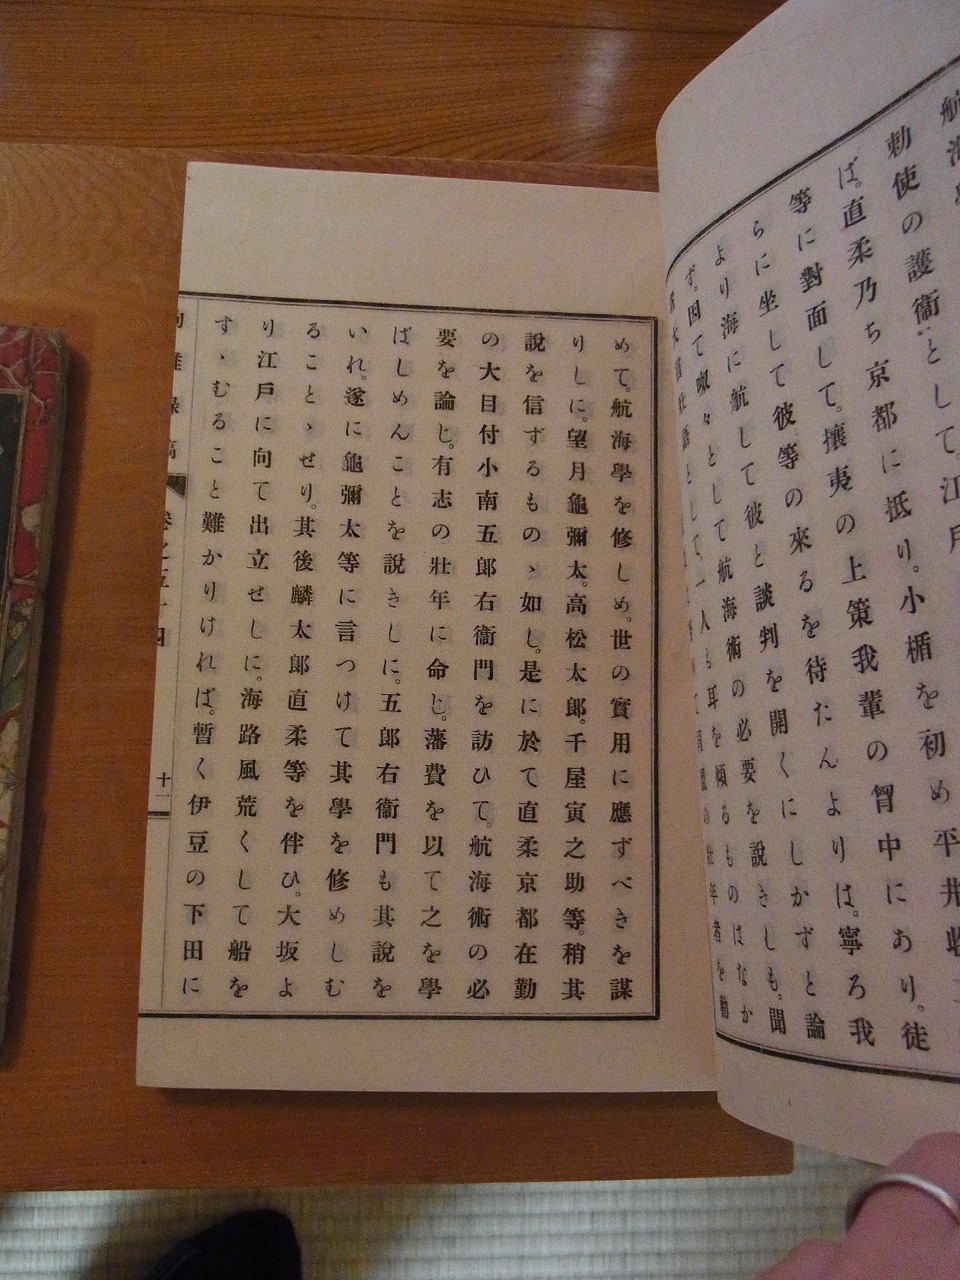 勅使の護衞としで江戶
ば。直柔乃ち京都に抵り。小楯を初め平井收
等に對面して。攘夷の上策我輩の胷中にあり。徒
らに坐して彼等の來るを待たんよりは。寧ろ我
より海に航して彼と談判を開くにしかずと論
ず。因て
めて。航海學を修しめ。世の實用に應ずべきを謀
りしに。望月龜彌太。高松太郎。千屋寅之助等。稍其
說を信ずるものゝ如し。是に於て直柔京都在勤
の大目付小南五郎右衞門を訪ひて。航海術の必
要を論じ。有志の壯年に命じ。藩費を以て之を學
ばしめんことを說きしに。五郎右衞門も其說を
いれ。遂に龜彌太等に言つけて其學を修めしむ
ることゝせり。其後麟太郎直柔等を伴ひ。大坂よ
り江戶に向て出立せしに。海路風荒くして船を
すゝむること難かりければ。暫く伊豆の下田に
十一